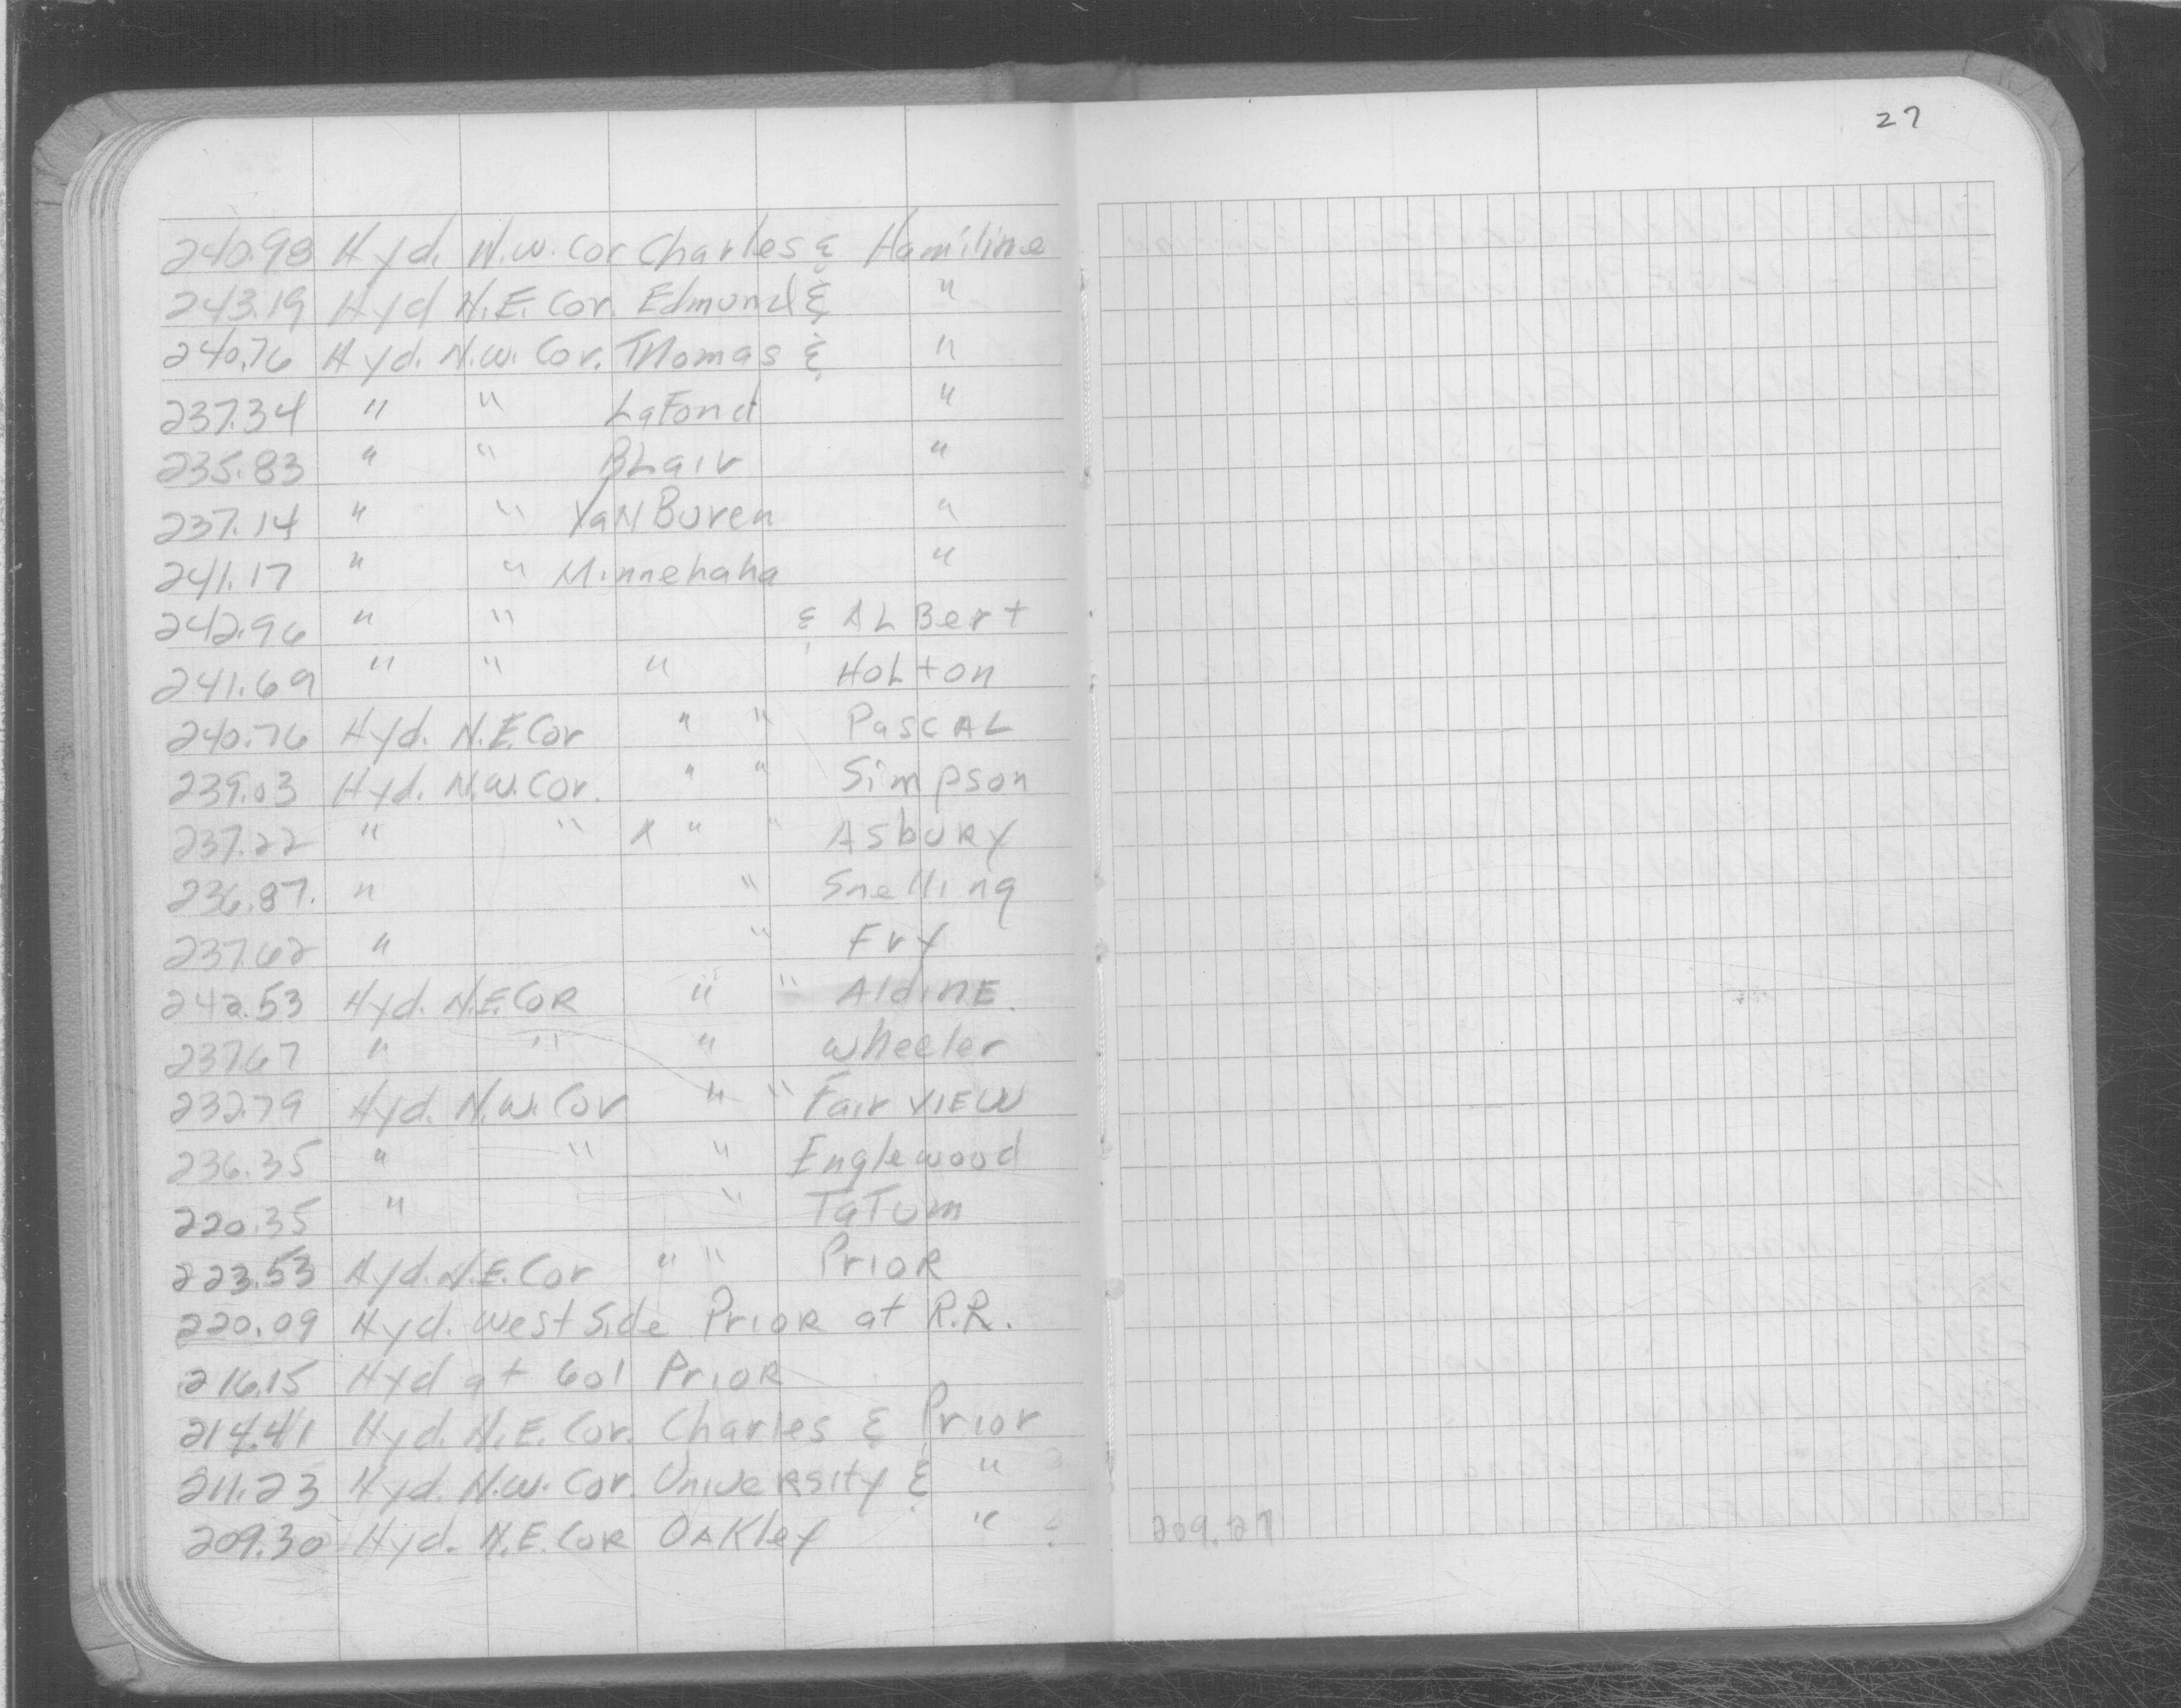 27
240.98 Hyd. N.W. Cor Charles & Hamiline
243.19 Hyd N.E. Cor. Edmund & "
240.76 Hyd. N.W. Cor. Thomas & "
237.34 " " LaFond "
235.83 " " BLair "
237.14 " " VaN Buren "
241.17 " " Minnehaha "
242.96 " " & ALBert
241.69 " " " HoLton
240.76 Hyd. N.E. Cor " " PascAL
239.03 Hyd. N.W. Cor. " " Simpson
237.22 " " X " " AsbuRy
236.87. " " Snelling
237.62 " " Fry
242.53 Hyd. N.E. CoR " " AldinE.
237.67 " " " Wheeler
232.79 Hyd. N.W. Cor " " Fair VIEW
236.35 " " " Englewood
220.35 " " TaTum
223.53 Hyd. N.E. Cor " " PrioR
220.09 Hyd. West Side PrioR at R.R.
216.15 Hyd at 601 PrioR
214.41 Hyd. N.E. Cor. Charles & Prior
211.23 Hyd. N.W. Cor. UniveRsity & "
209.30 Hyd. N.E. CoR OAKley "
209.27